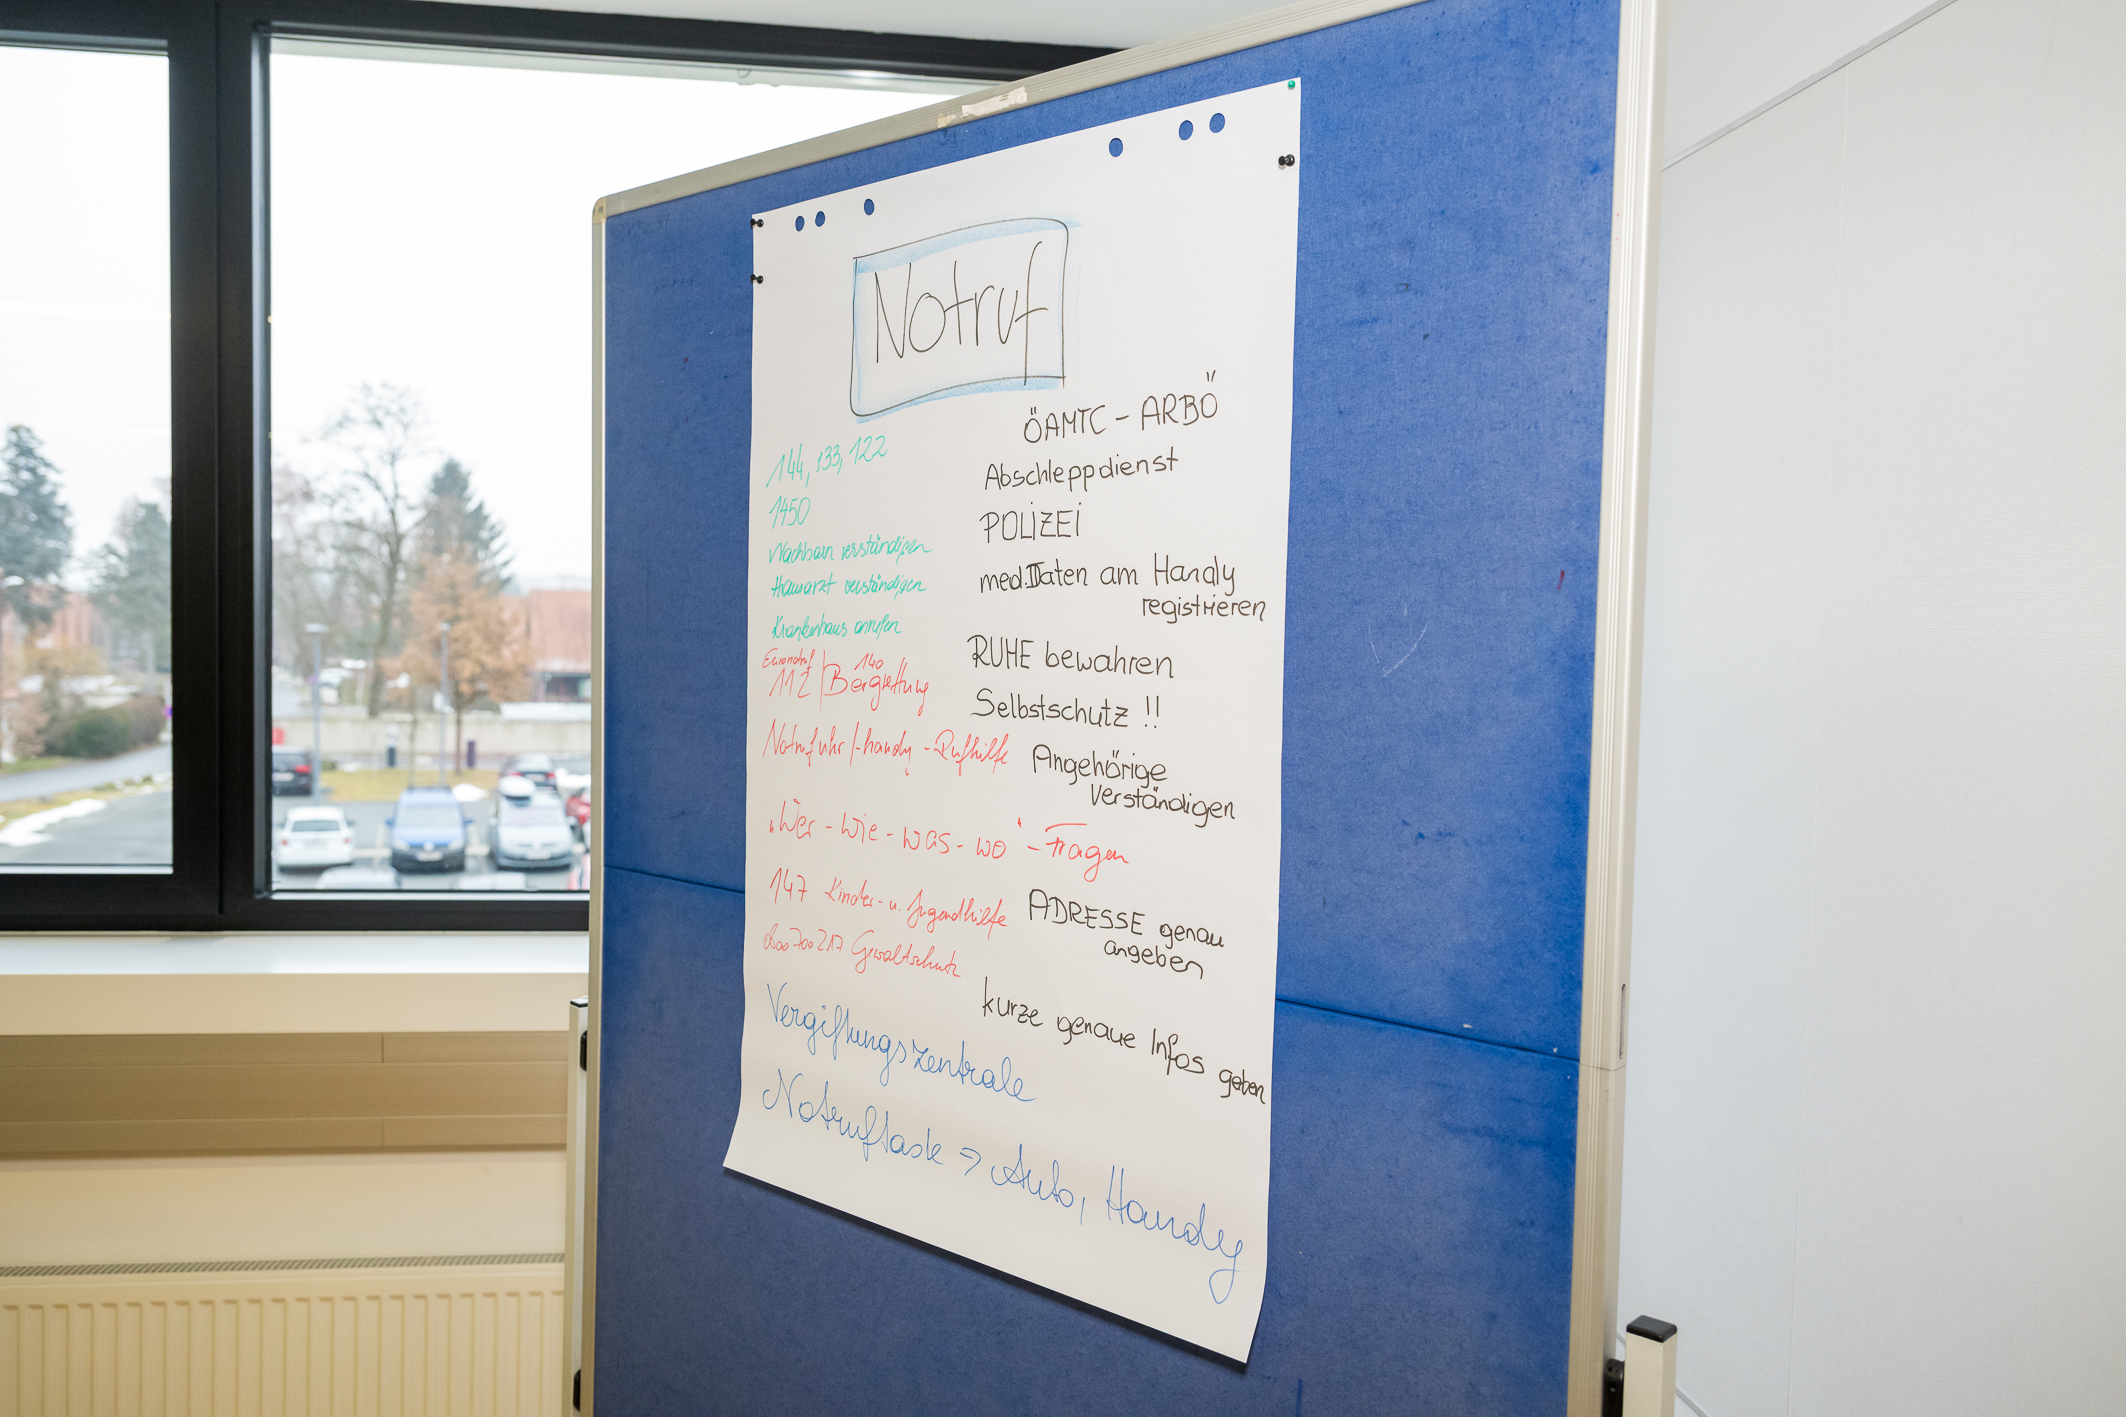 Notruf
144, 133, 122
1450
Nachbarn verständigen
Hausarzt verständigen
Krankenhaus anrufen
Euronotruf
112 | 140 Bergrettung
Notrufuhr/-handy - Rufhilfe
"Wer - wie - was - wo" - Fragen
147 Kinder- u. Jugendhilfe
0800 700 217 Gewaltschutz
Vergiftungszentrale
Notruftaste => Auto, Handy
ÖAMTC - ARBÖ
Abschleppdienst
POLIZEI
med. Daten am Handy
registrieren
RUHE bewahren
Selbstschutz !!
Angehörige
verständigen
ADRESSE genau
angeben
kurze genaue Infos geben